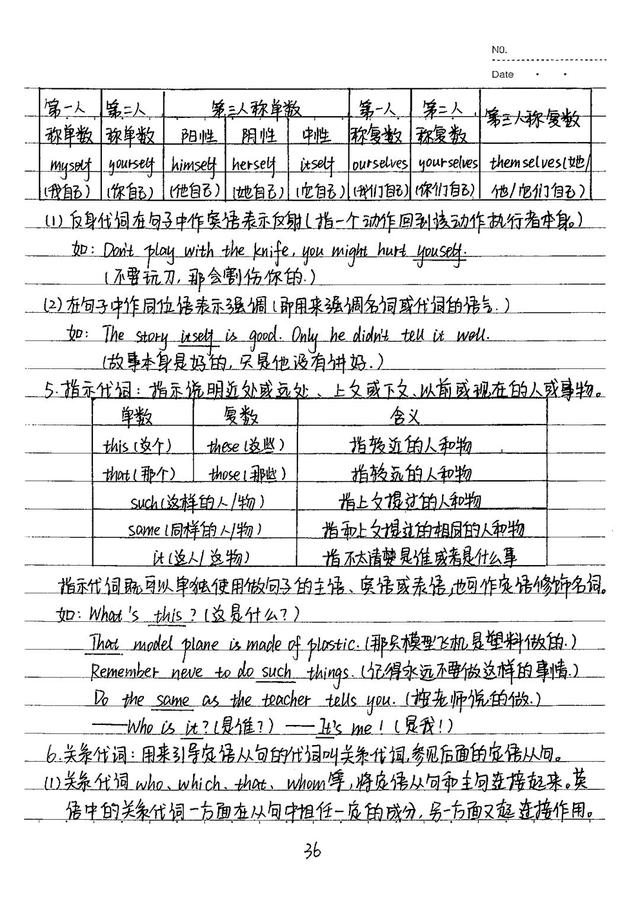 NO.
Date
第一人 第二人 第三人称单数 第一人 第二人 第三人称复数
称单数 称单数 阳性 阴性 中性 称复数 称复数
myself yourself himself herself itself ourselves yourselves themselves(她/
(我自己) (你自己) (他自己) (她自己) (它自己) (我们自己) (你们自己) 他/它们自己)
(1)反身代词在句子中作宾语表示反射(指一个动作回到该动作执行者本身。)
如: Don't play with the knife, you might hurt youself.
(不要玩刀,那会割伤你的.)
(2)在句子中作同位语表示强调(即用来强调名词或代词的语气.)
如: The story itself is good. Only he didn't tell it well.
(故事本身是好的,只是他没有讲好.)
5.指示代词:指示说明近处或远处、上文或下文、以前或现在的人或事物。
单数 复数 含义
this(这个) these(这些) 指较近的人和物
that(那个) those(那些) 指较远的人和物
such(这样的人/物) 指上文提过的人和物
same(同样的人/物) 指和上文提过的相同的人和物
it(这人/这物) 指不太清楚是谁或者是什么事
指示代词既可以单独使用做句子的主语、宾语或表语,也可作定语修饰名词。
如: What's this?(这是什么?)
That model plane is made of plastic.(那只模型飞机是塑料做的.)
Remember neve to do such things.(记得永远不要做这样的事情.)
Do the same as the teacher tells you.(按老师说的做.)
——Who is it?(是谁?) ——It's me!(是我!)
6.关系代词:用来引导定语从句的代词叫关系代词,参见后面的定语从句。
(1)关系代词who、which、that、whom等,将定语从句和主句连接起来。英
语中的关系代词一方面在从句中担任一定的成分,另一方面又起连接作用。
36